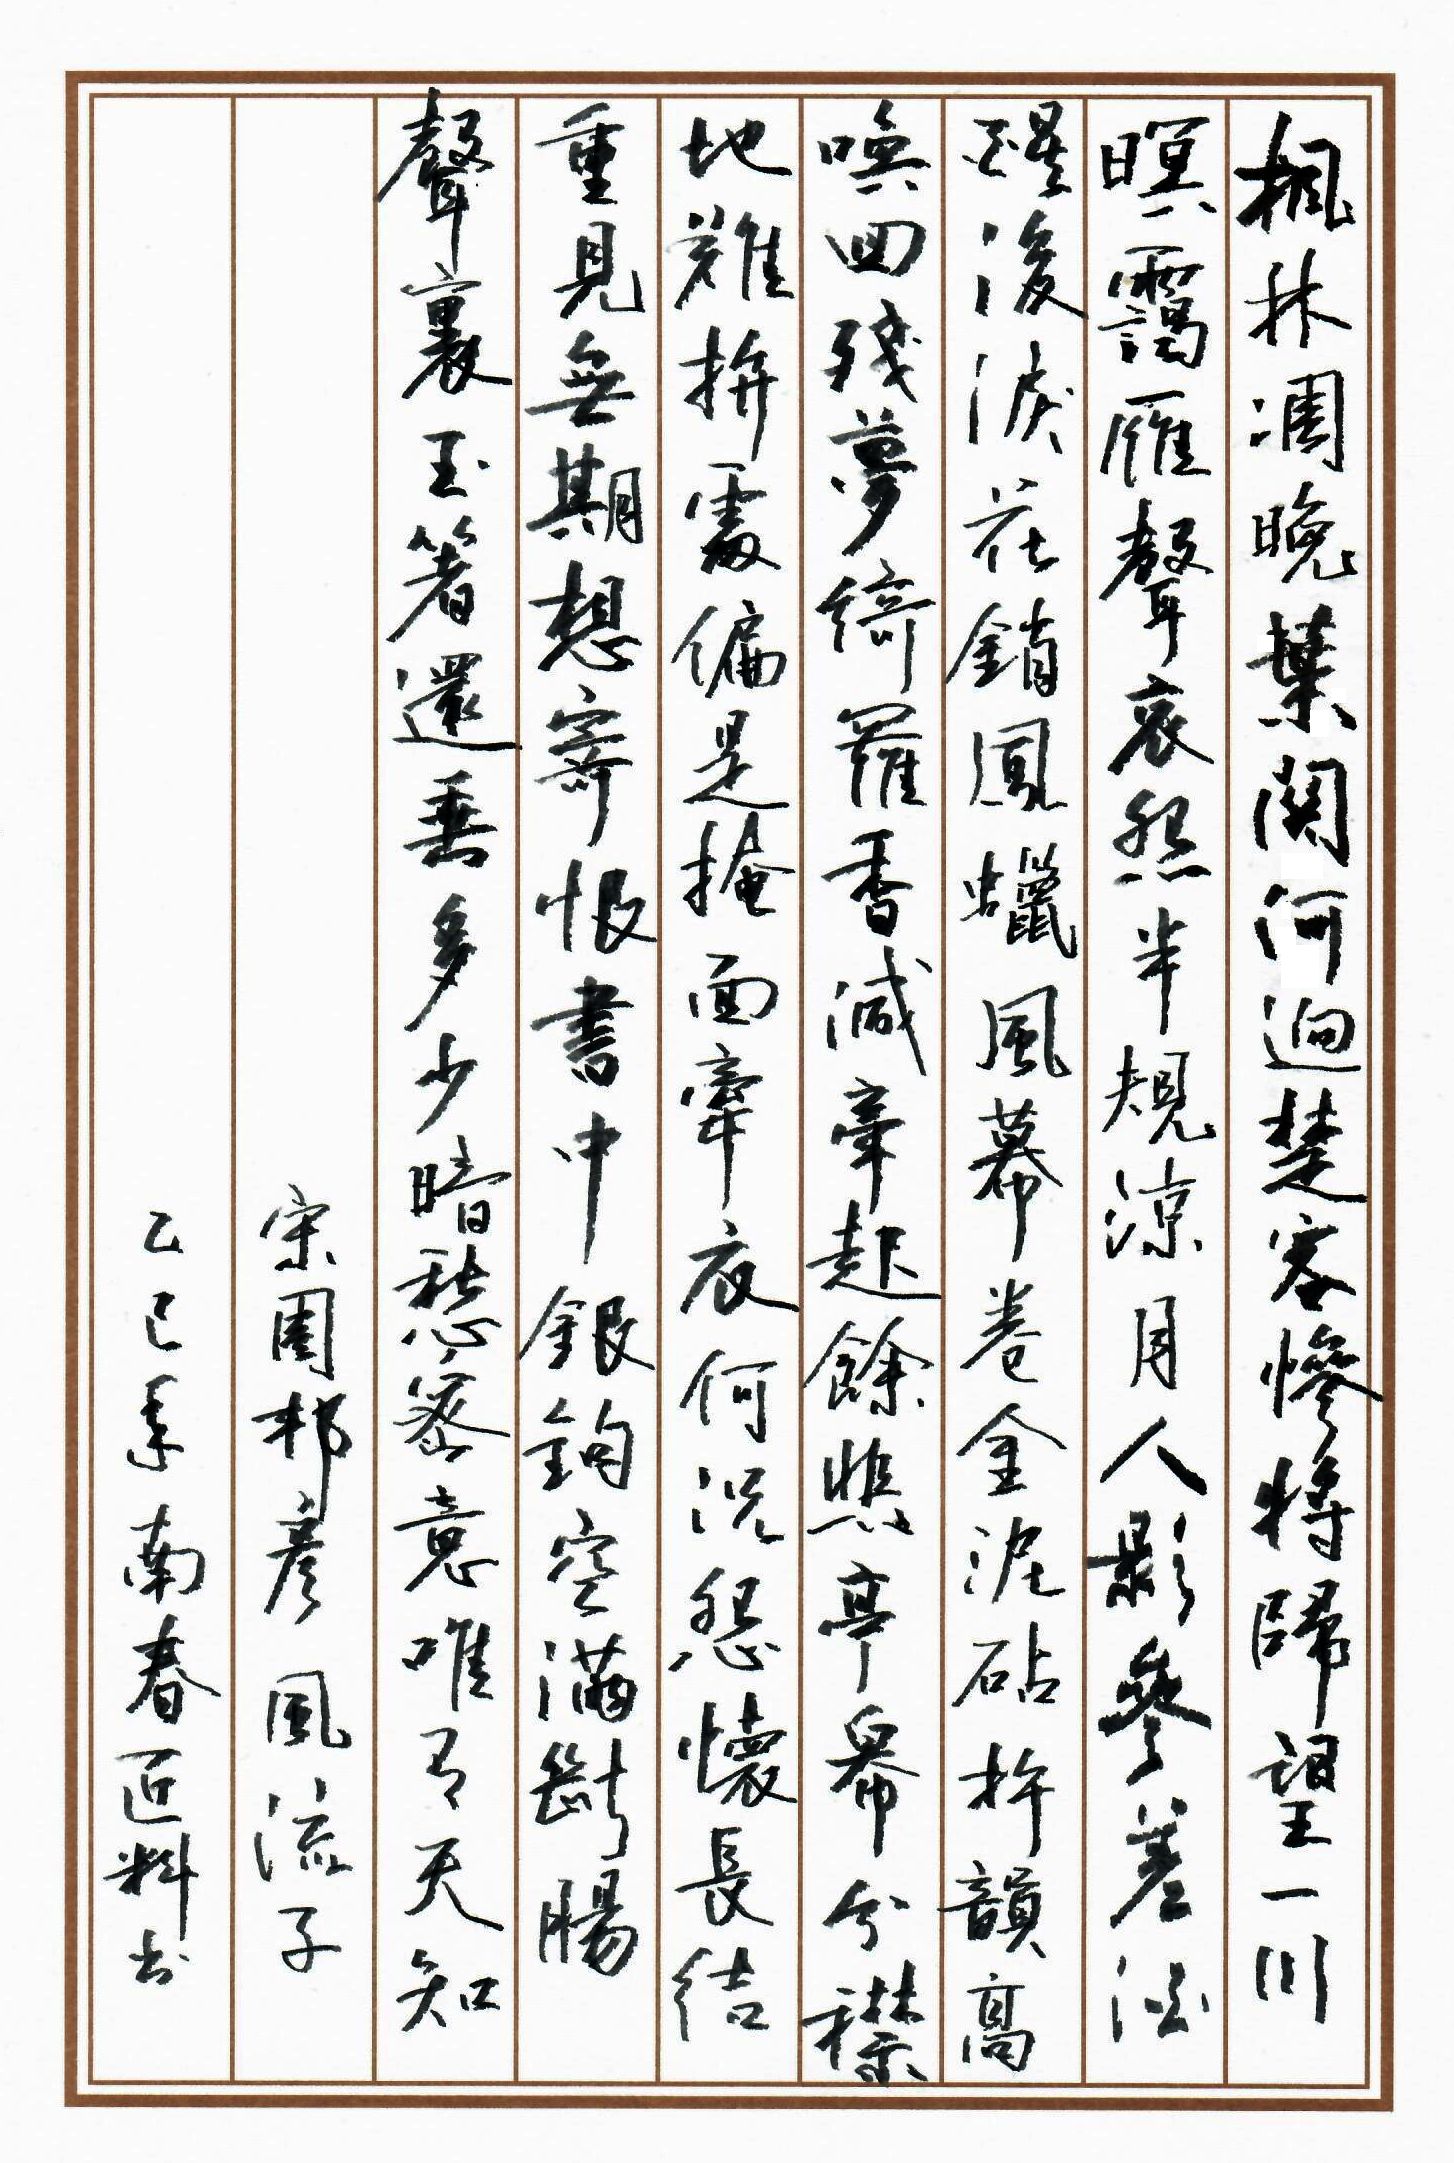 楓林凋晚葉關河迥楚客慘將歸望一川
暝靄雁聲哀怨半規涼月人影參差酒
醒後淚花銷鳳蠟風幕卷金泥砧杵韻高
喚回殘夢綺羅香減牽起餘悲亭皋分襟
地難拚處偏是掩面牽衣何況怨懷長結
重見無期想寄恨書中銀鈎空滿斷腸
聲裏玉箸還垂多少暗愁密意唯有天知
宋周邦彥風流子
乙巳年南春匠料書